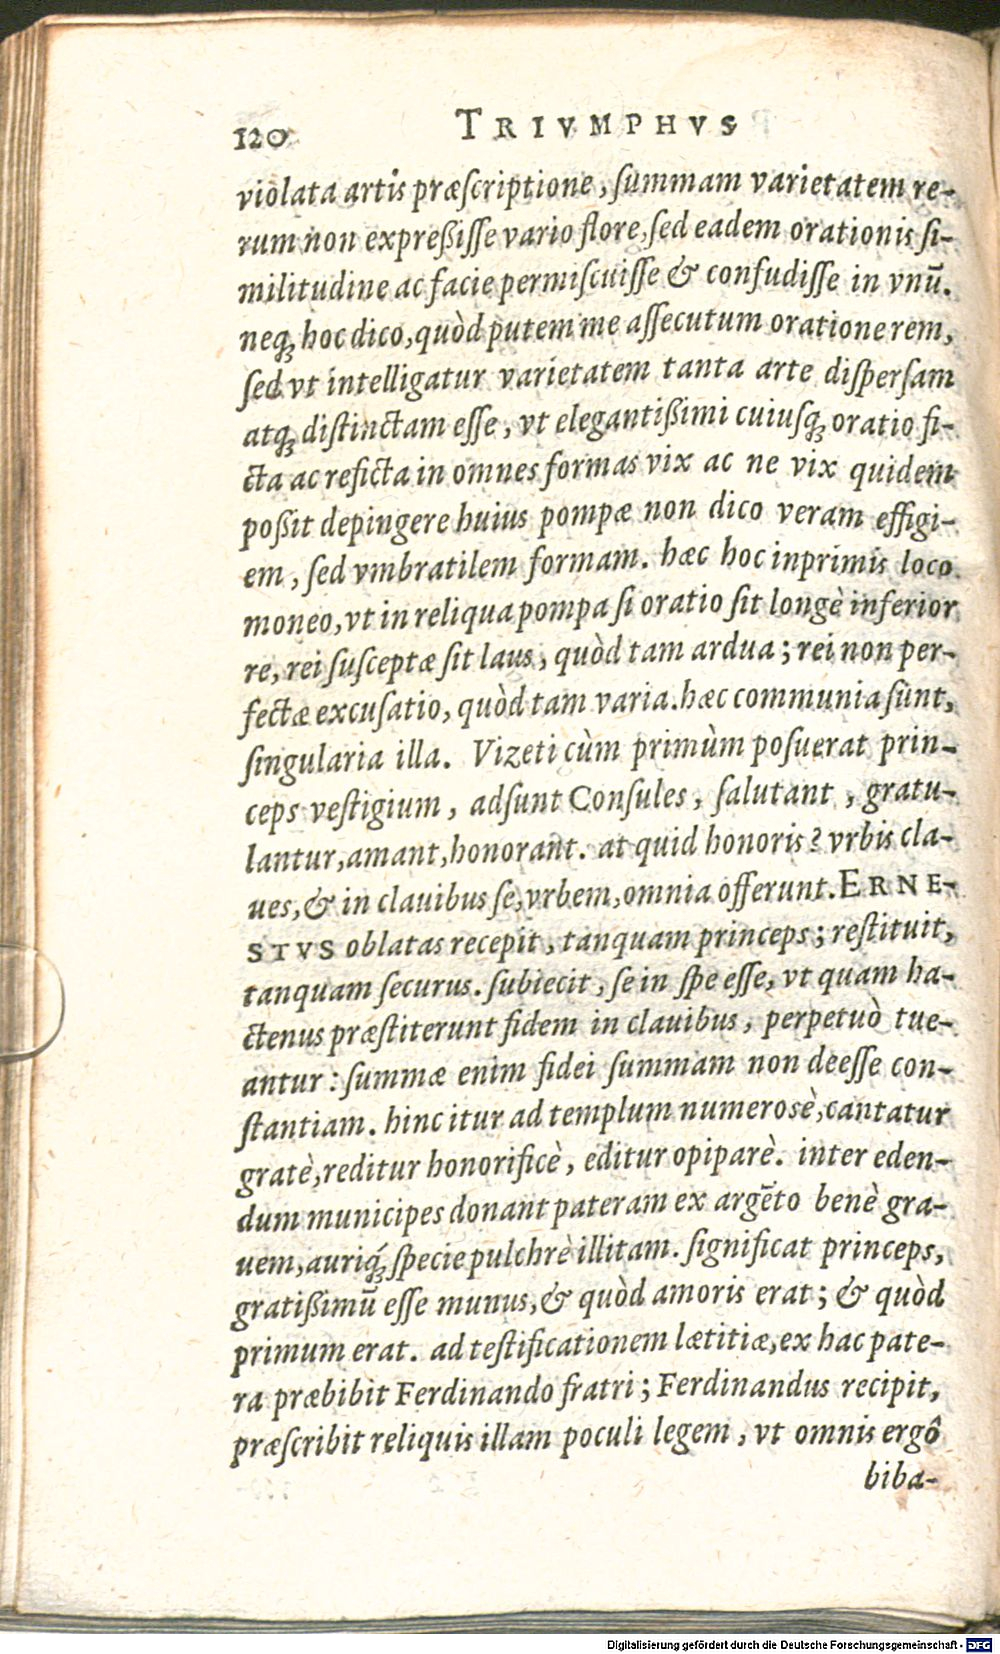 120 TRIVMPHVS
violata artis præſcriptione, ſummam varietatem re-
rum non expreßiſſe vario flore, ſed eadem orationis ſi-
militudine ac facie permiſcuiſſe & confudiſſe in vnū.
neq; hoc dico, quòd putem me aſſecutum oratione rem,
ſed vt intelligatur varietatem tanta arte diſperſam
atq; diſtinctam eſſe, vt elegantißimi cuiuſq; oratio fi-
cta ac reficta in omnes formas vix ac ne vix quidem
poßit depingere huius pompæ non dico veram effigi-
em, ſed vmbratilem formam. hæc hoc inprimis loco
moneo, vt in reliqua pompa ſi oratio ſit longè inferior
re, rei ſuſceptæ ſit laus, quòd tam ardua; rei non per-
fectæ excuſatio, quòd tam varia. hæc communia ſunt,
ſingularia illa. Vizeti cùm primùm poſuerat prin-
ceps veſtigium, adſunt Conſules, ſalutant, gratu-
lantur, amant, honorant. at quid honoris? vrbis cla-
ues, & in clauibus ſe, vrbem, omnia offerunt. ERNE-
STVS oblatas recepit, tanquam princeps; reſtituit,
tanquam ſecurus. ſubiecit, ſe in ſpe eſſe, vt quam ha-
ctenus præſtiterunt fidem in clauibus, perpetuò tue-
antur: ſummæ enim fidei ſummam non deeſſe con-
ſtantiam. hinc itur ad templum numerosè, cantatur
gratè, reditur honorificè, editur opiparè. inter eden-
dum municipes donant pateram ex argēto benè gra-
uem, auriq́; ſpecie pulchrè illitam. ſignificat princeps,
gratißimū eſſe munus, & quòd amoris erat; & quòd
primum erat. ad teſtificationem lætitiæ, ex hac pate-
ra præbibit Ferdinando fratri; Ferdinandus recipit,
præſcribit reliquis illam poculi legem, vt omnis ergô
biba-
Digitalisierung gefördert durch die Deutsche Forschungsgemeinschaft - DFG